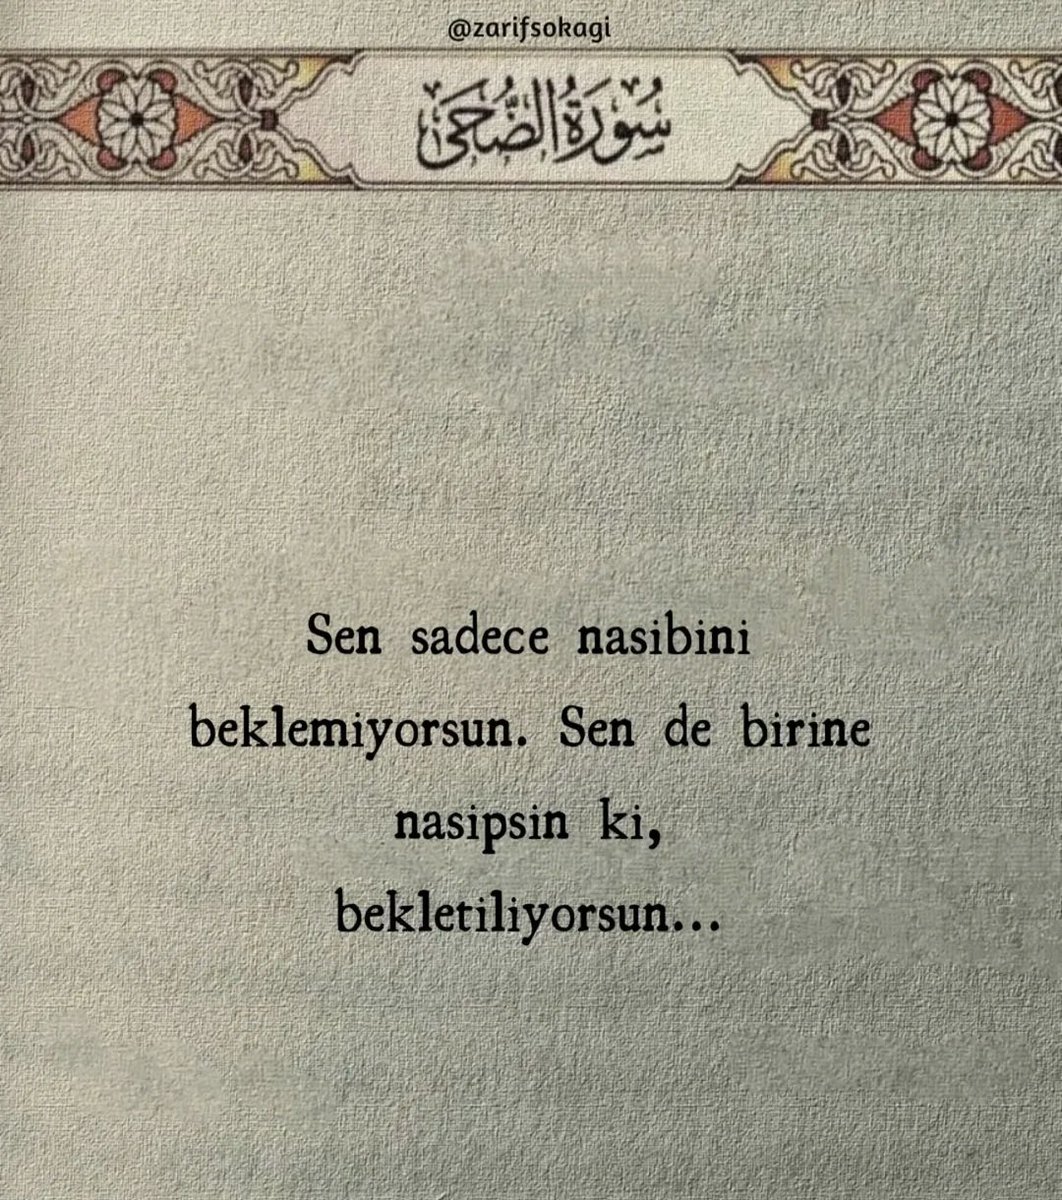 @zarifsokagi
سُورَةُ الضُّحَىٰ
Sen sadece nasibini
beklemiyorsun. Sen de birine
nasipsin ki,
bekletiliyorsun...